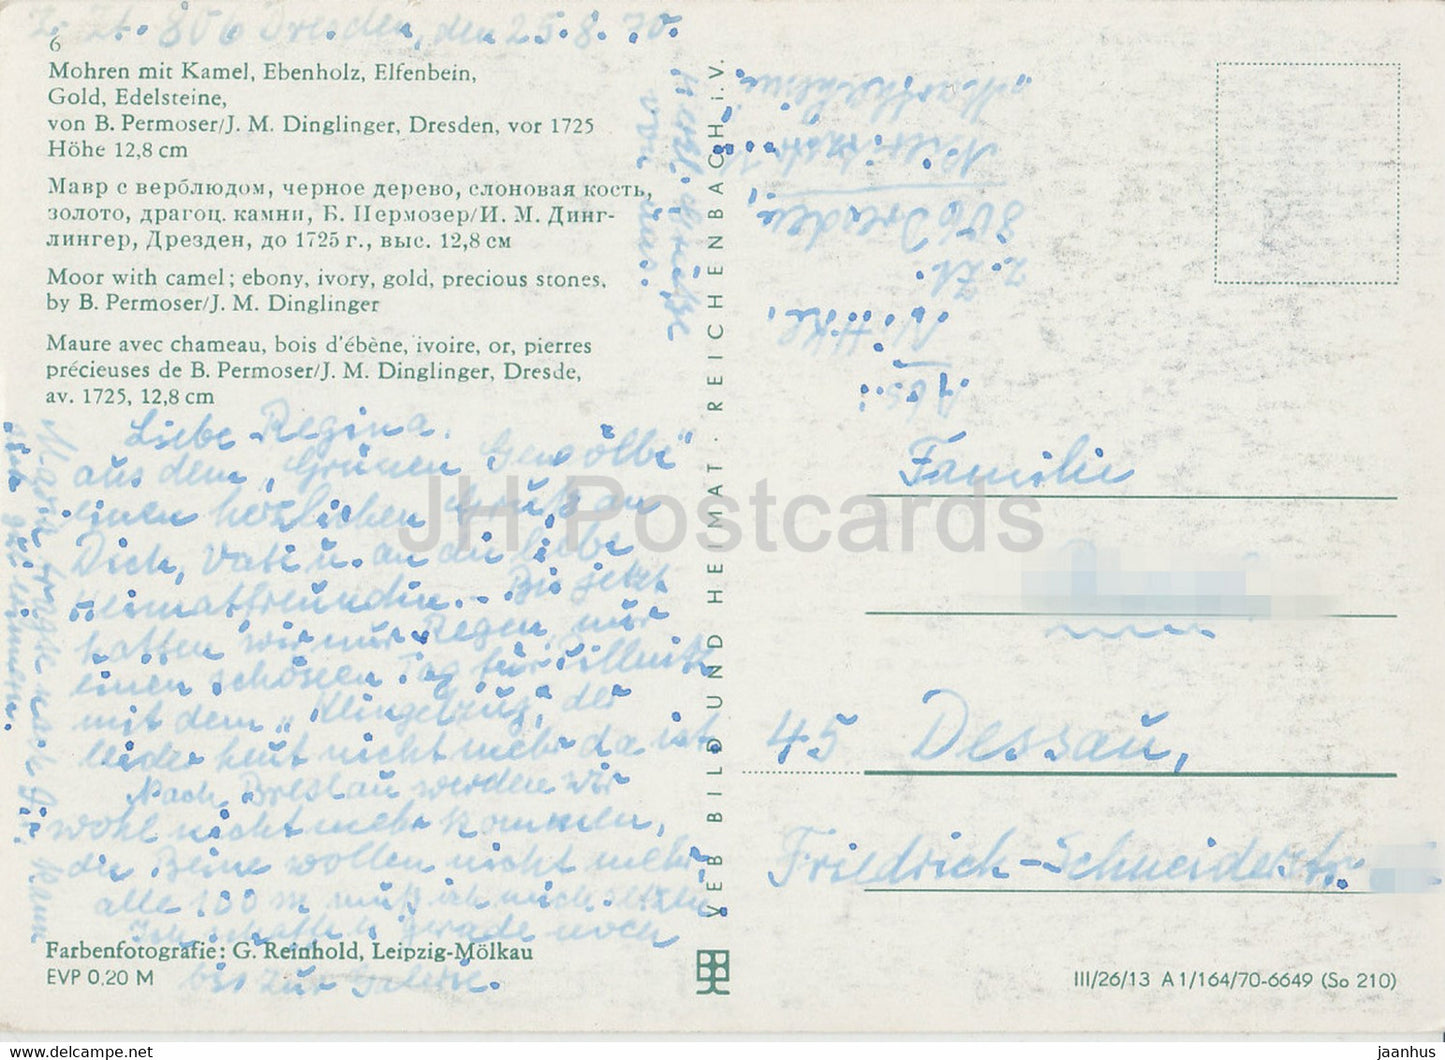 z. Zt. 806 Dresden, den 25.8.70.
6
Mohren mit Kamel, Ebenholz, Elfenbein,
Gold, Edelsteine,
von B. Permoser/J. M. Dinglinger, Dresden, vor 1725
Höhe 12,8 cm
Мавр с верблюдом, черное дерево, слоновая кость,
золото, драгоц. камни, Б. Пермозер/И. М. Динг-
лингер, Дрезден, до 1725 г., выс. 12,8 см
Moor with camel; ebony, ivory, gold, precious stones,
by B. Permoser/J. M. Dinglinger
Maure avec chameau, bois d'ébène, ivoire, or, pierres
précieuses de B. Permoser/J. M. Dinglinger, Dresde,
av. 1725, 12,8 cm
Liebe Regina.
aus dem „Grünen Gewölbe"
einen herzlichen Gruß an
Dich, Vati u. an die liebe
Heimatfreundin. - Bis jetzt
hatten wir nur Regen, nur
einen schönen Tag für Pillnitz
mit dem „Klingelzug, der
leider heut nicht mehr da ist
Nach Breslau werden wir
wohl nicht mehr kommen,
die Beine wollen nicht mehr
alle 100 m muß ich mich setzen
Ich schaffte gerade noch
bis zur Galerie.
herzl. Grüße
von
Farbenfotografie: G. Reinhold, Leipzig-Mölkau
EVP 0,20 M
VEB BILD UND HEIMAT · REICHENBACH i. V.
Abs.:
Nittke,
z. Zt.
806 Dresden,
Familie
45 Dessau,
Friedrich-Schneiderstr.
III/26/13 A 1/164/70-6649 (So 210)
JH Postcards
https://www.delcampe.net/en_US/collectibles/
jaanhus